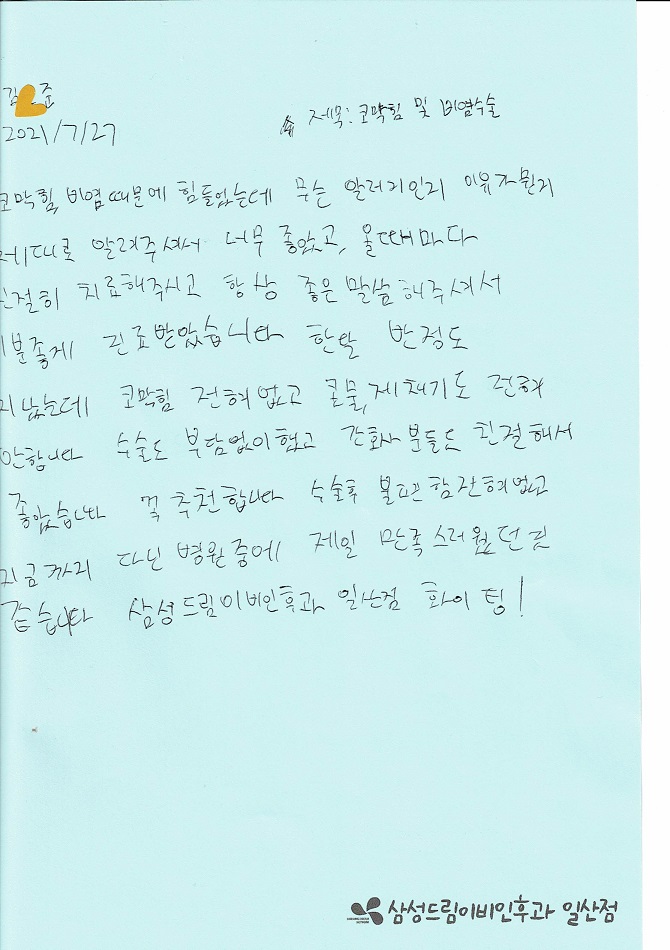 김 준
2021/7/27
제목: 코막힘 및 비염수술
코막힘, 비염때문에 힘들었는데 무슨 알러지인지 이유가뭔지
제대로 알려주셔서 너무 좋았고, 올때마다
친절히 치료해주시고 항상 좋은말씀해주셔서
기분좋게 진료받았습니다 한달 반정도
지났는데 코막힘 전혀없고 콧물,재채기도 전혀
안합니다 수술도 부담없이했고 간호사분들도 친절해서
좋았습니다 꼭 추천합니다 수술후 불편함전혀없고
지금까지 다닌 병원중에 제일 만족스러웠던것
같습니다 삼성드림이비인후과 일산점 화이팅!
삼성드림이비인후과 일산점